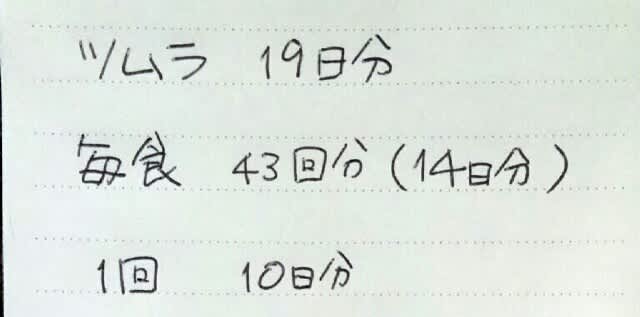 ツムラ 19日分
毎食 43回分(14日分)
1回 10日分